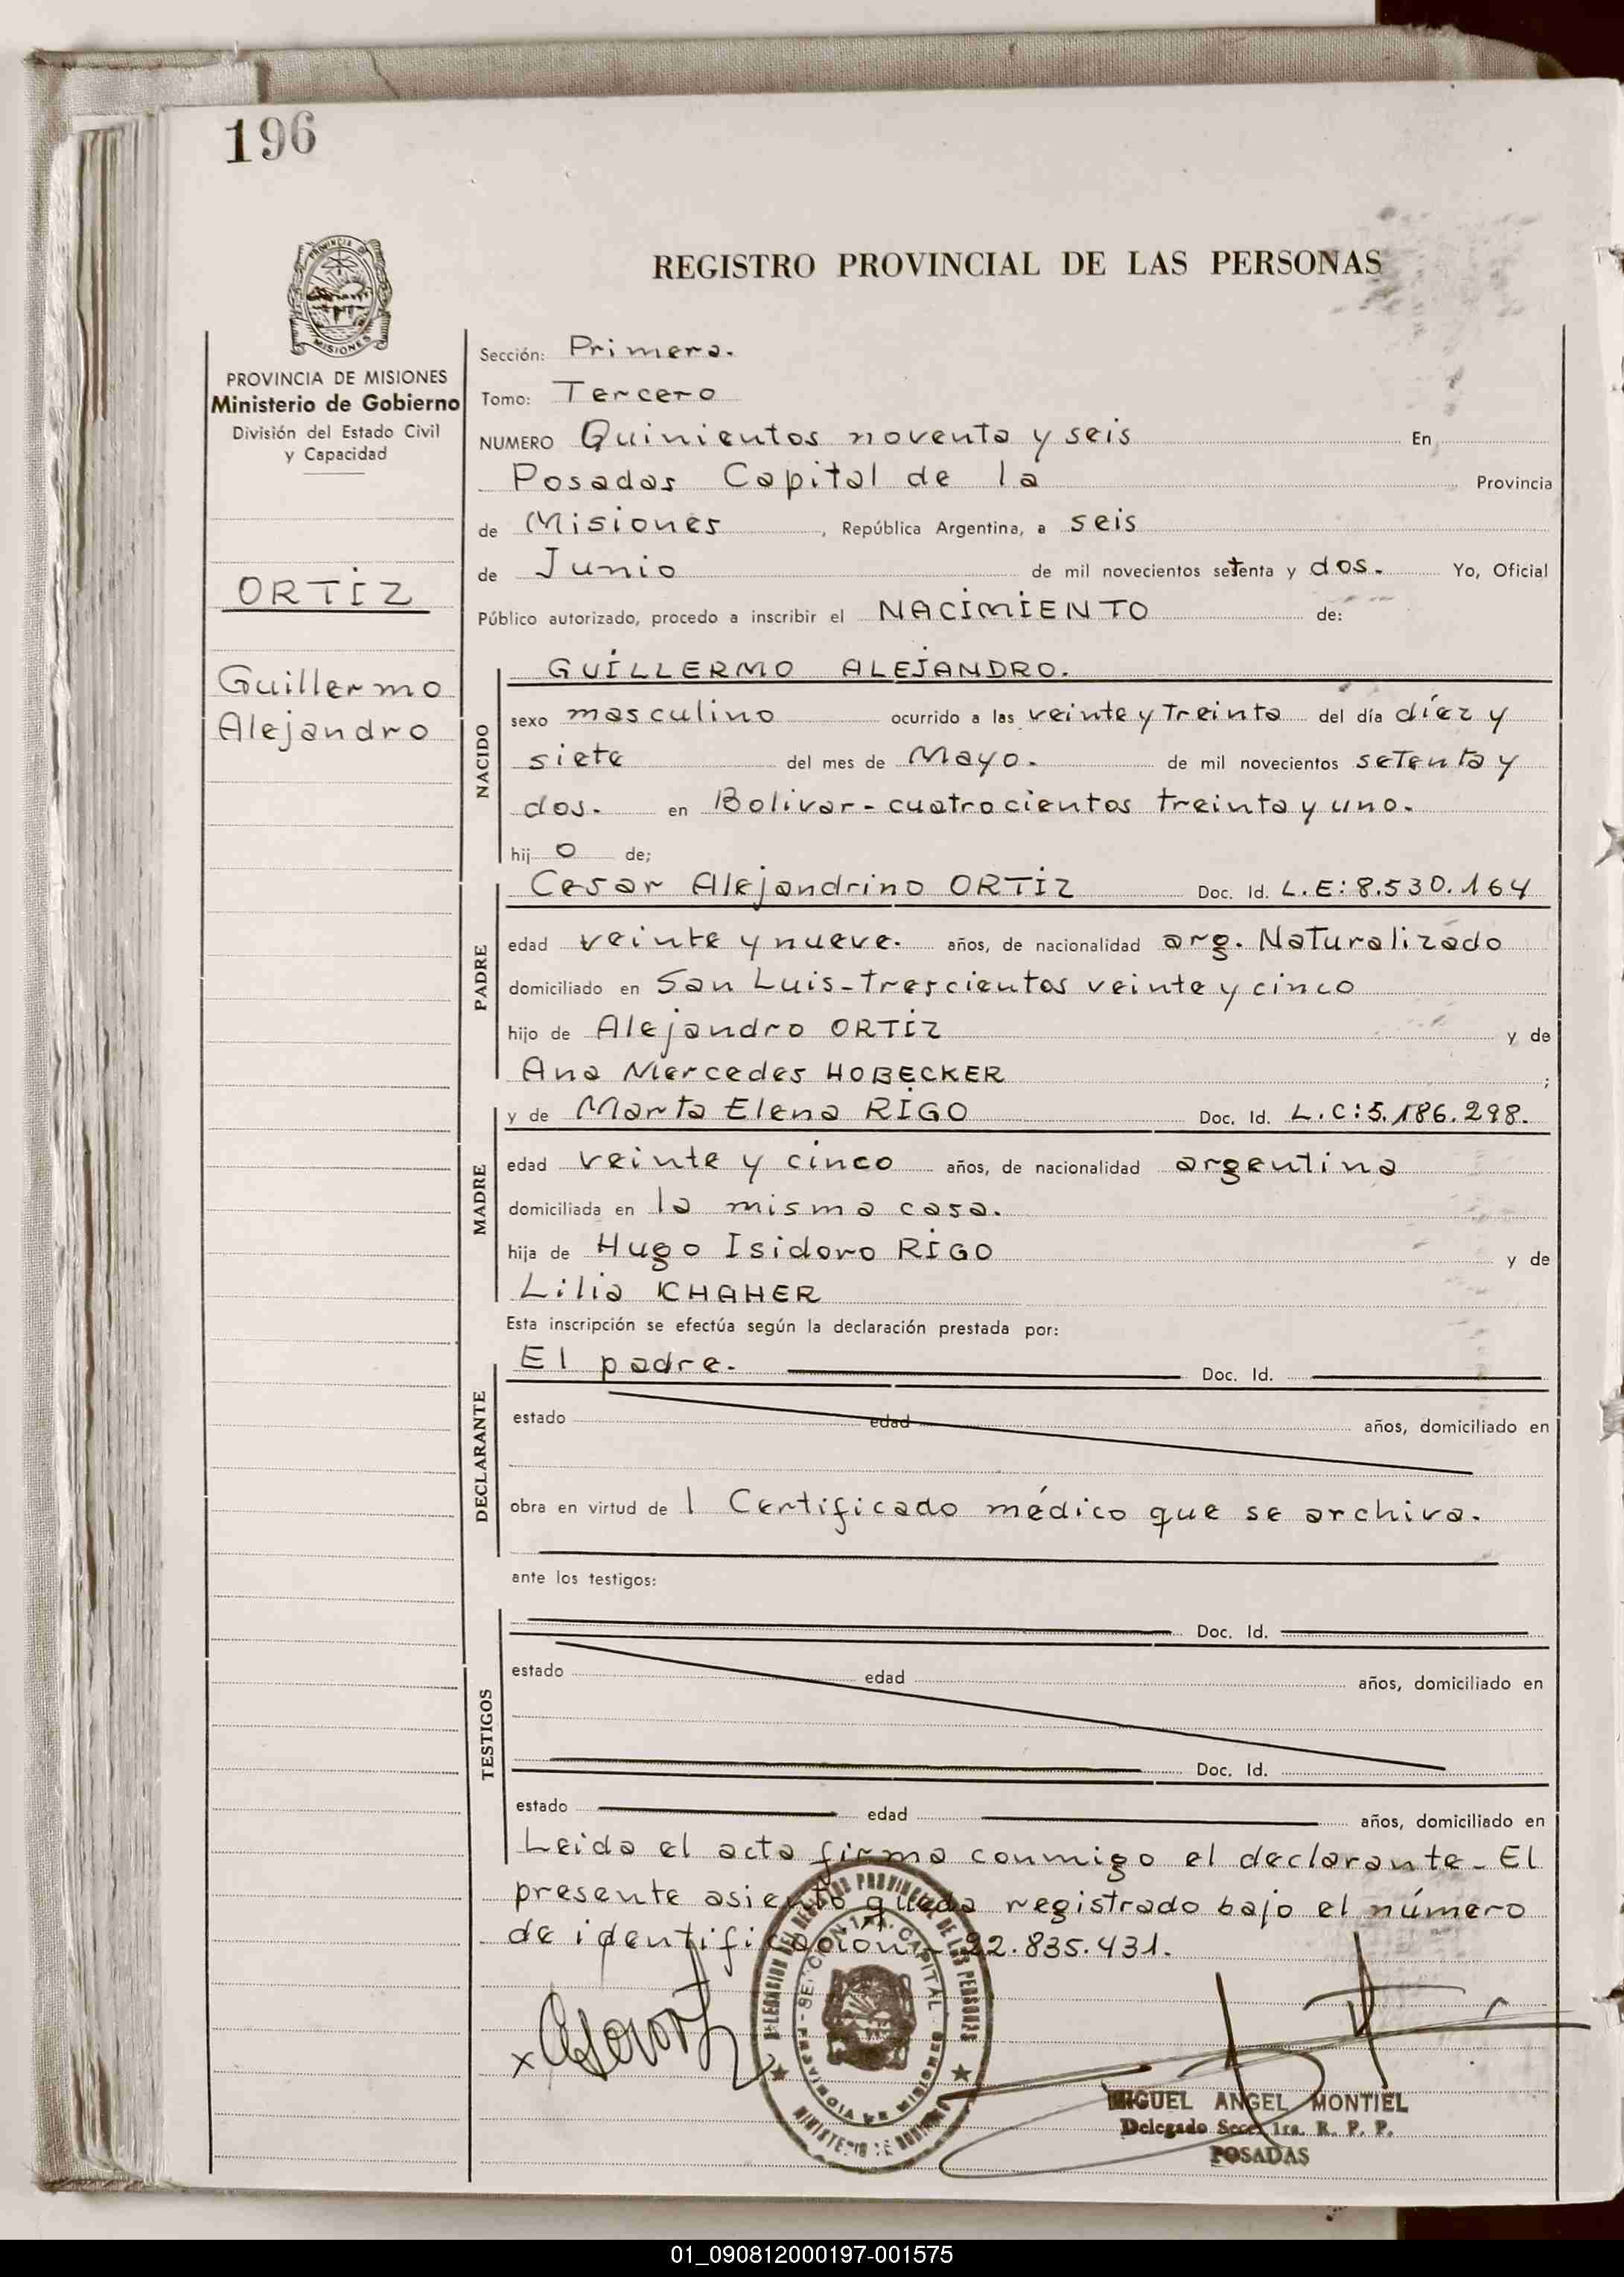 196
PROVINCIA DE
MISIONES
REGISTRO PROVINCIAL DE LAS PERSONAS
PROVINCIA DE MISIONES
Ministerio de Gobierno
División del Estado Civil
y Capacidad
ORTIZ
Guillermo
Alejandro
Sección: Primera.
Tomo: Tercero
NUMERO Quinientos noventa y seis En
Posadas Capital de la Provincia
de Misiones, República Argentina, a seis
de Junio de mil novecientos setenta y dos. Yo, Oficial
Público autorizado, procedo a inscribir el NACIMIENTO de:
NACIDO
GUILLERMO ALEJANDRO.
sexo masculino ocurrido a las veinte y treinta del día diez y
siete del mes de Mayo. de mil novecientos setenta y
dos. en Bolivar - cuatrocientos treinta y uno.
hij o de;
PADRE
Cesar Alejandrino ORTIZ Doc. Id. L.E: 8.530.164
edad veinte y nueve. años, de nacionalidad arg. Naturalizado
domiciliado en San Luis - trescientos veinte y cinco
hijo de Alejandro ORTIZ y de
Ana Mercedes HOBECKER ;
MADRE
y de Marta Elena RIGO Doc. Id. L.C: 5.186.298.
edad veinte y cinco años, de nacionalidad argentina
domiciliada en la misma casa.
hija de Hugo Isidoro RIGO y de
Lilia KHAHER
Esta inscripción se efectúa según la declaración prestada por:
DECLARANTE
El padre. Doc. Id.
estado edad años, domiciliado en
obra en virtud de 1 Certificado médico que se archiva.
ante los testigos:
TESTIGOS
Doc. Id.
estado edad años, domiciliado en
Doc. Id.
estado edad años, domiciliado en
Leida el acta firma conmigo el declarante - El
presente asiento queda registrado bajo el número
de identificación - 22.835.431.
DELEGACION DEL REGISTRO PROVINCIAL DE LAS PERSONAS
SECCION 1RA. CAPITAL
PROVINCIA DE MISIONES
MINISTERIO DE GOBIERNO
MIGUEL ANGEL MONTIEL
Delegado Secc. 1ra. R. P. P.
POSADAS
01_090812000197-001575